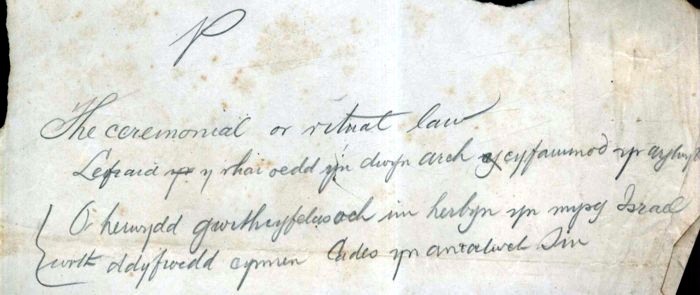 P
The ceremonial or ritual law
Lefiaid y rhai oedd yn dwyn arch y cyfammod yr Arglwydd
O herwydd gwrthryfelasoch i'm herbyn yn mysg Israel
wrth ddyfroedd cynnen Cades yn anialwch Sin